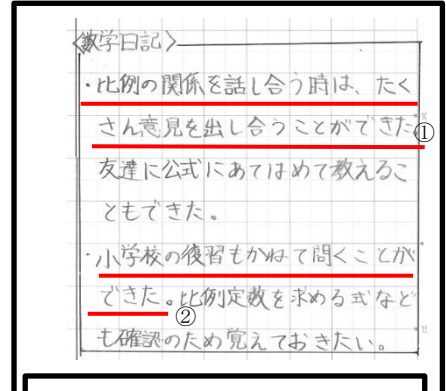 〈数学日記〉
・比例の関係を話し合う時は、たく
さん意見を出し合うことができた①
友達に公式にあてはめて教えるこ
ともできた。
・小学校の復習もかねて聞くことが
できた。比例定数を求める式など
②
も確認のため覚えておきたい。